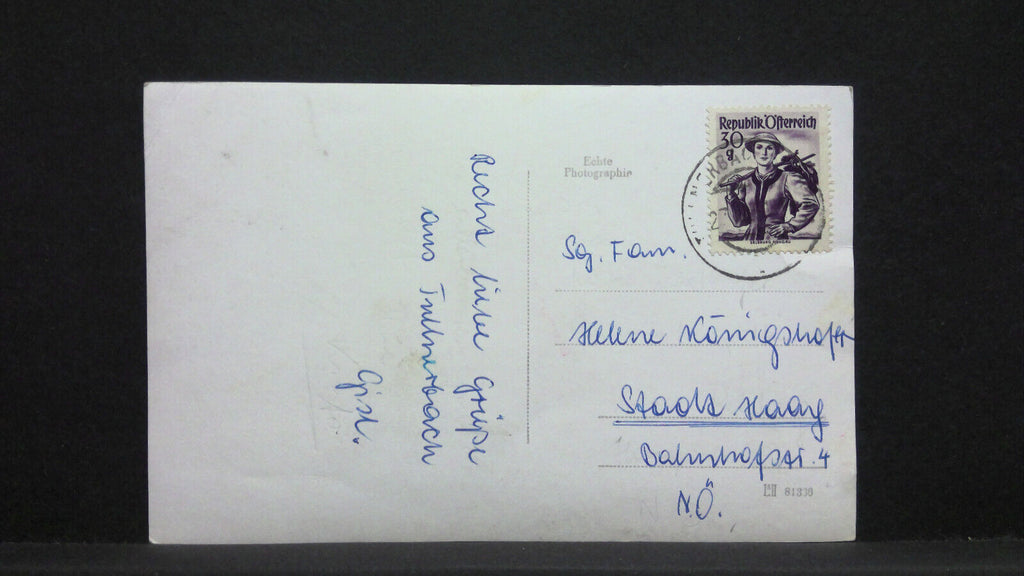 Recht liebe Grüße
aus Tullnerbach
Gisl.
Echte
Photographie
Republik Österreich
30
g
Sg. Fam.
Helene Königshofer
Stadt Haag
Bahnhofstr. 4
N.Ö.
81338